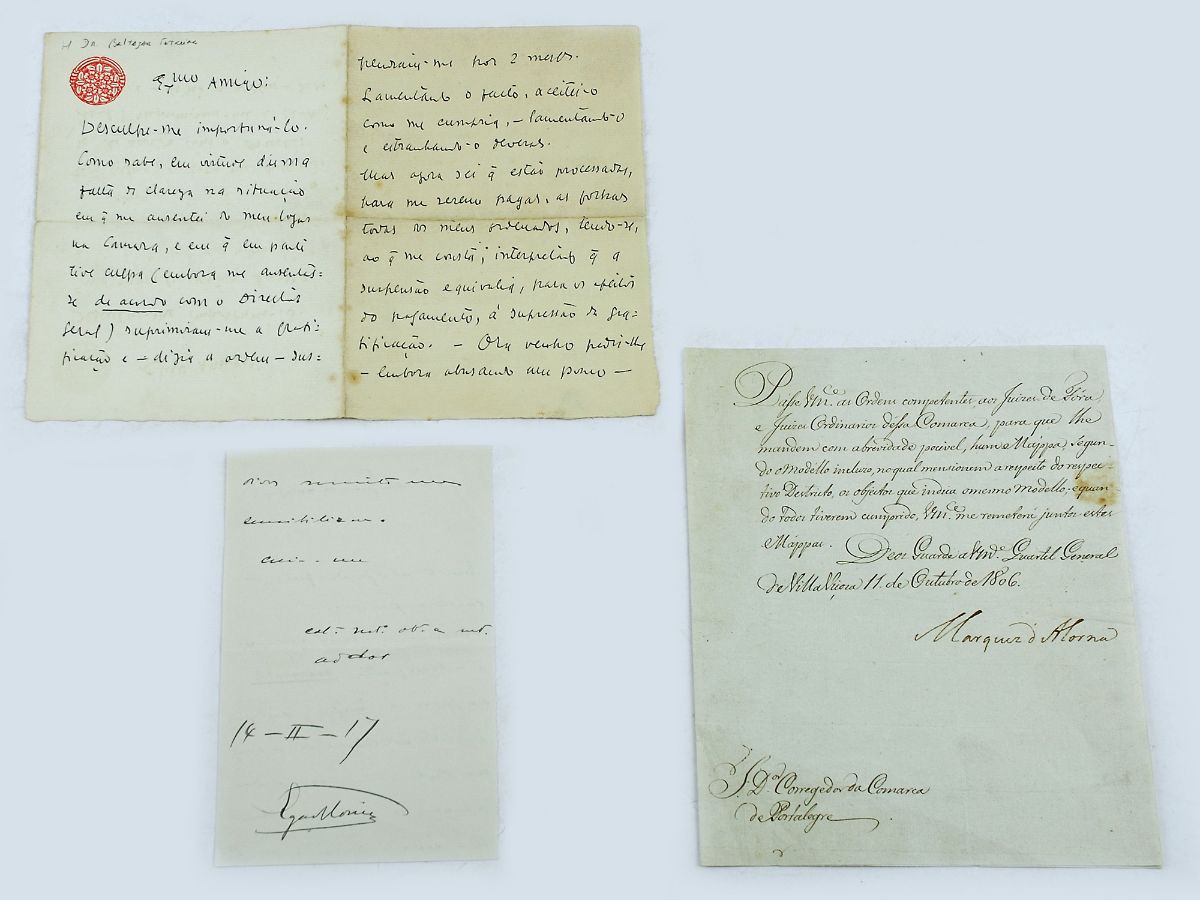 Exmo Amigo:
Desculpe-me importuná-lo.
Como sabe, em virtude duma
falta de clareza na situação
em q̃ me ausentei do meu logar
na Camara, e em q̃ em parte
tive culpa (embora me ausentas-
se de acordo com o Director
Geral) suprimiram-me a grati-
ficação e – dizia a ordem – sus-
penderam-me por 2 meses.
Lamentando o facto, aceitei-o
como me cumpria, – lamentando-o
e estranhando-o deveras.
Mas agora sei q̃ estão processadas,
para me serem pagas, as folhas
todas os meus ordenados, tendo-se,
ao q̃ me consta, interpretado q̃ a
suspensão equivalia, para os efeitos
do pagamento, á supressão da gra-
tificação. – Ora venho pedir-lhe
– embora abusando um pouco –
sensibilizou.
14-II-17
Egas Moniz
Passe Vm.ce as Ordens competentes aos Juizes de Fóra
e Juizes Ordinarios dessa Comarca, para que lhe
mandem com abrevidade pocivel, hum Mappa, segun-
do o Modello incluzo, no qual mensionem a respeito do respec-
tivo Destruto, os objectos que indica o mesmo Modello, e quan-
do todos tiverem cumprido, Vm.ce me remeterá juntos estes
Mappas. Deos Guarde a Vm.ce Quartel General
de Villa Viçosa 11 de Outubro de 1806.
Marquez d'Alorna
S.r D.or Corregedor da Comarca
de Portalegre